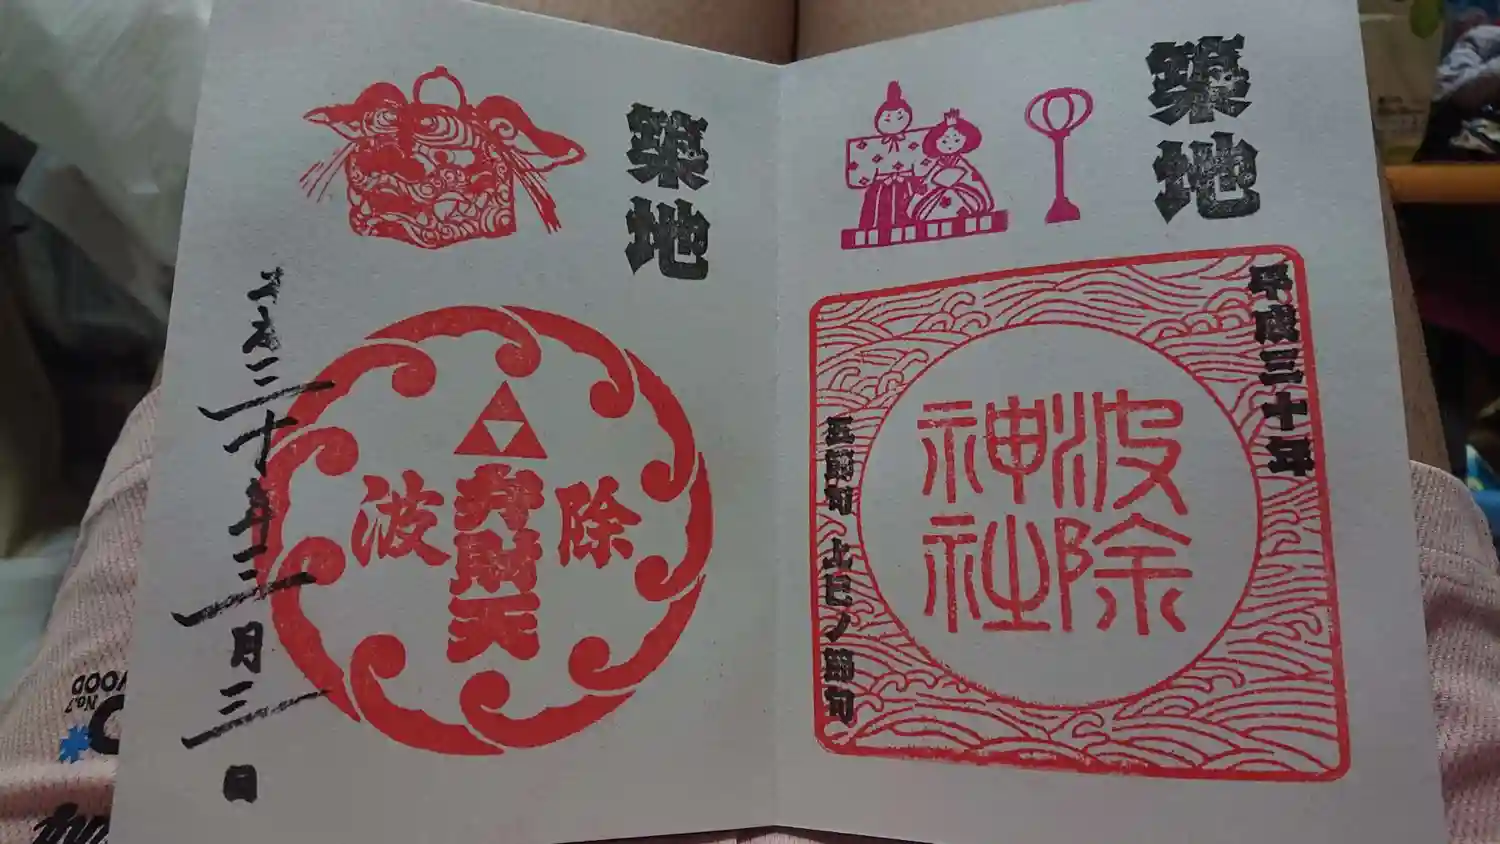 築地
平成三十年
波除
神社
五節句 上巳ノ節句
築地
波除
弁財天
平成三十年三月三日
No.7
WOOD